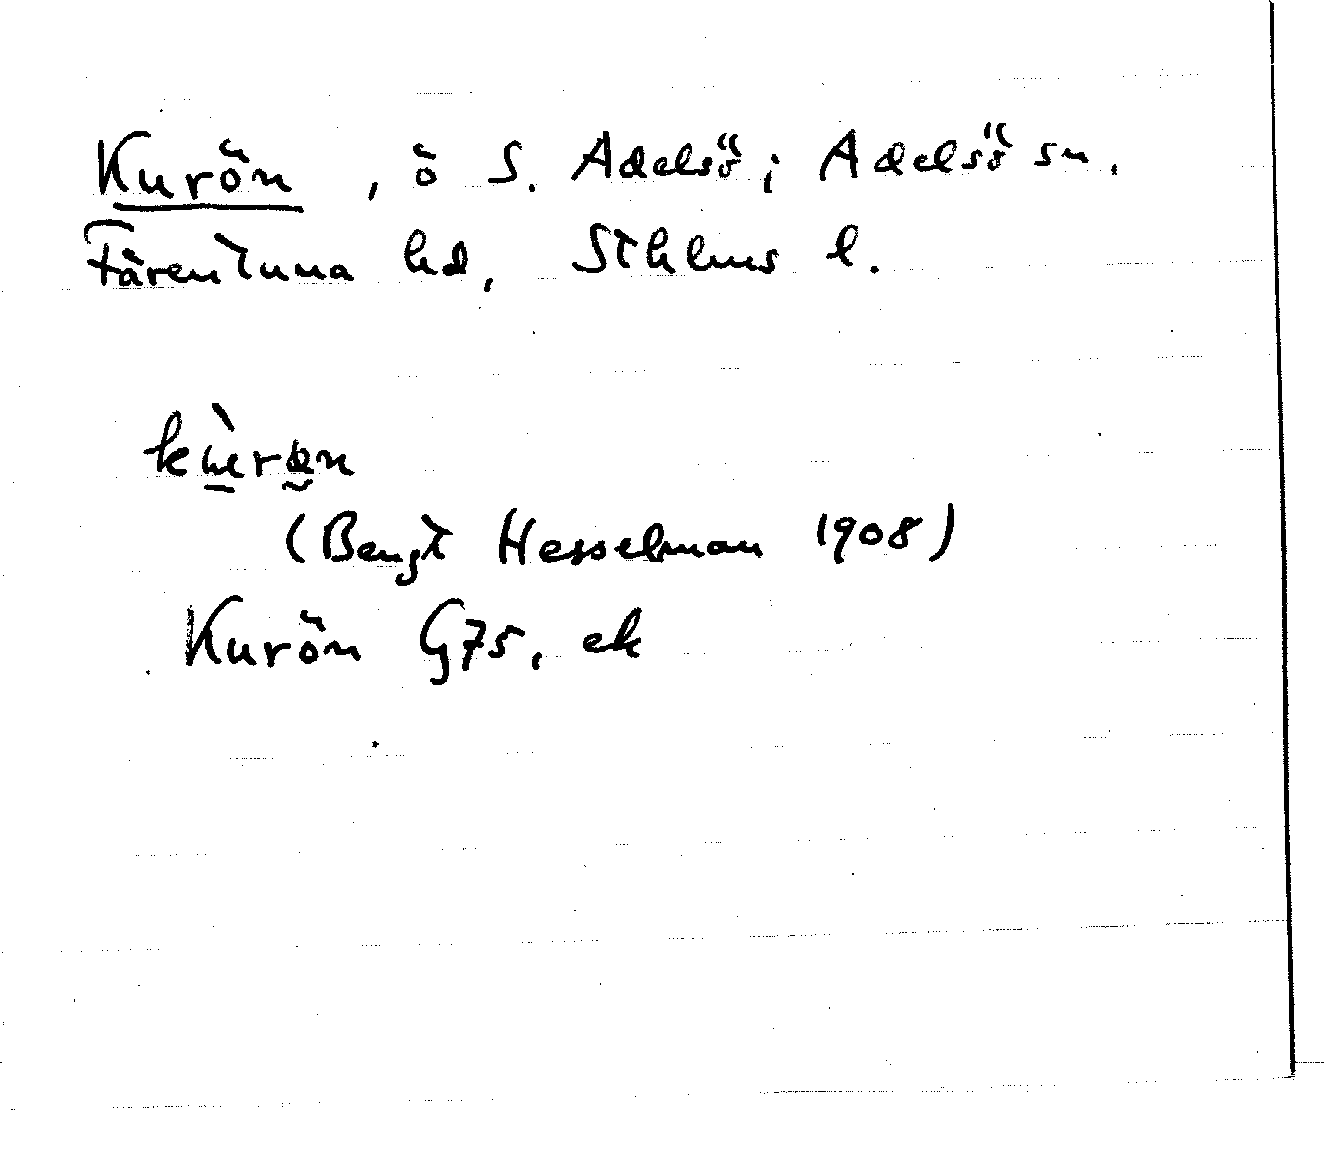 Kurön, ö S. Adelsö; Adelsö sn.
Färentuna hd, Sthlms l.
(Bengt Hesselman 1908)
Kurön G75, ek